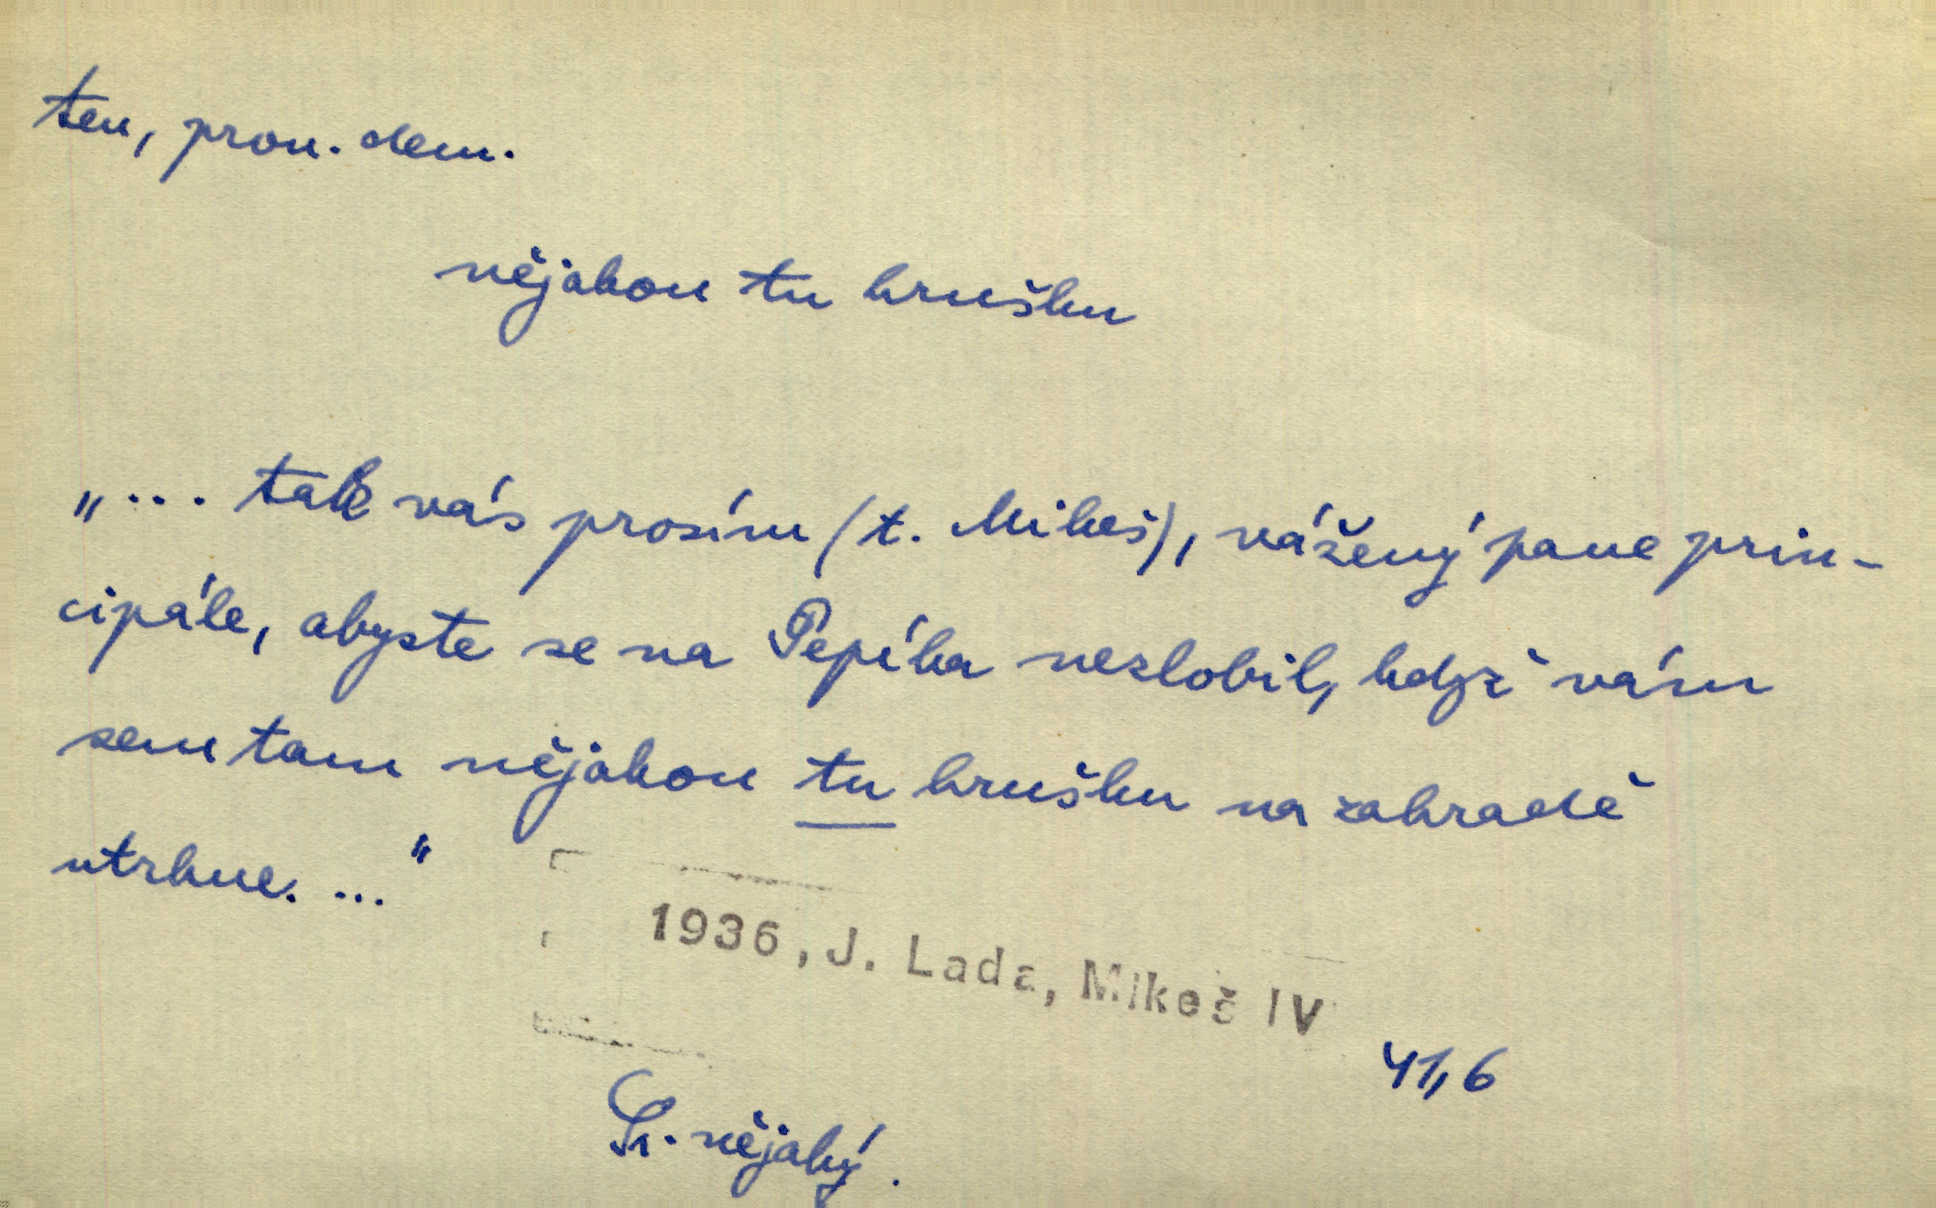 ten, pron. dem.
nějakou tu hrušku
„... tak vás prosím (t. Mikeš), vážený pane prin-
cipále, abyste se na Pepíka nezlobil, když vám
sem tam nějakou tu hrušku na zahradě
utrhne. ..."
1936, J. Lada, Mikeš IV
41,6
Sr. nějaký.